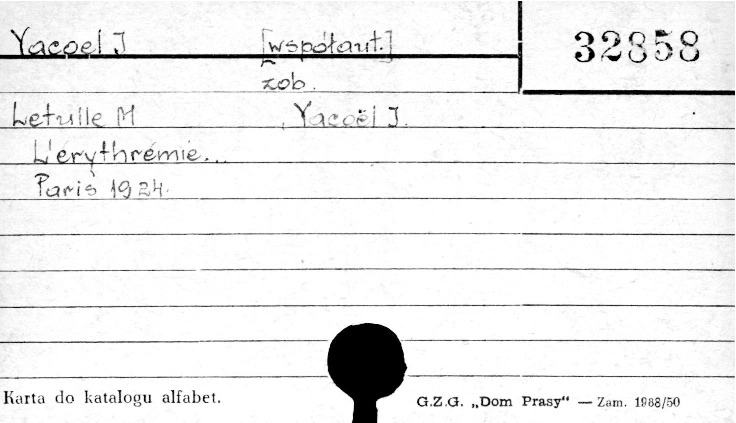 Yacoel J [współaut.] 32858
zob.
Letulle M , Yacoël J.
L'erythrémie...
Paris 1924.
Karta do katalogu alfabet. G.Z.G. „Dom Prasy“ — Zam. 1988/50